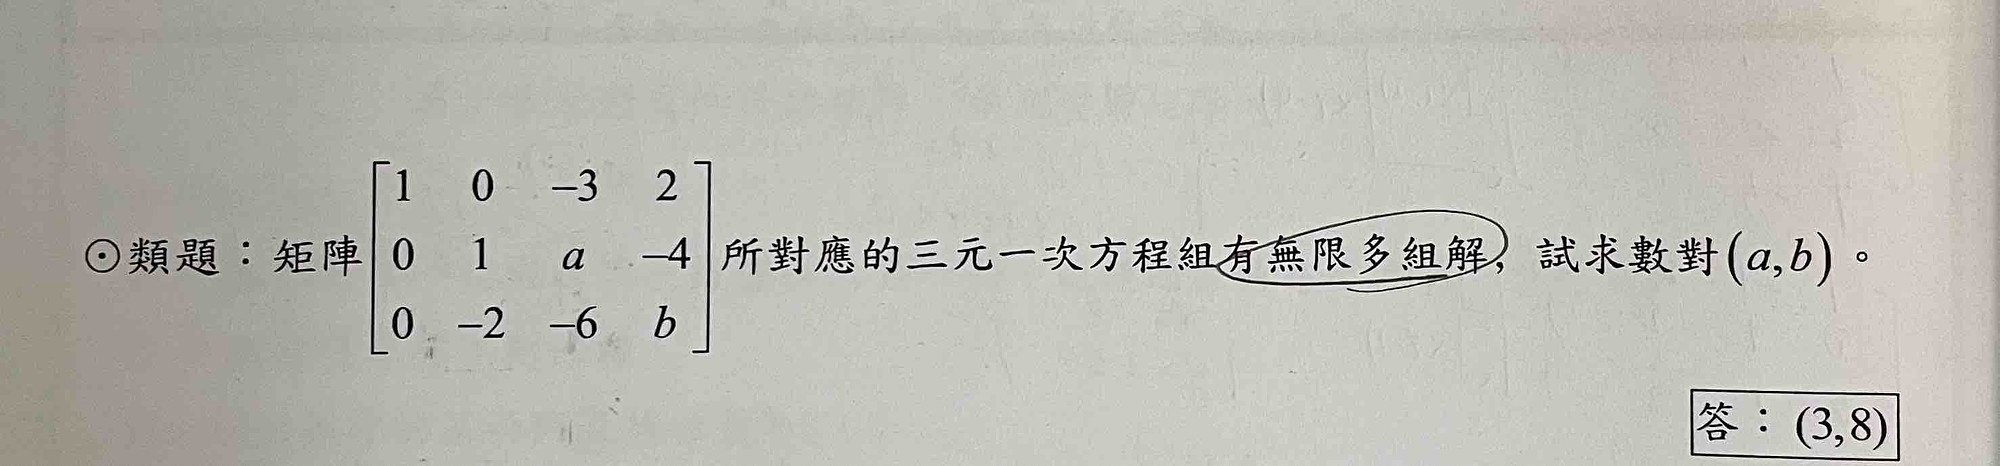 ⊙類題：矩陣 [1 0 -3 2
0 1 a -4
0 -2 -6 b] 所對應的三元一次方程組有無限多組解，試求數對(a,b)。
答：(3,8)